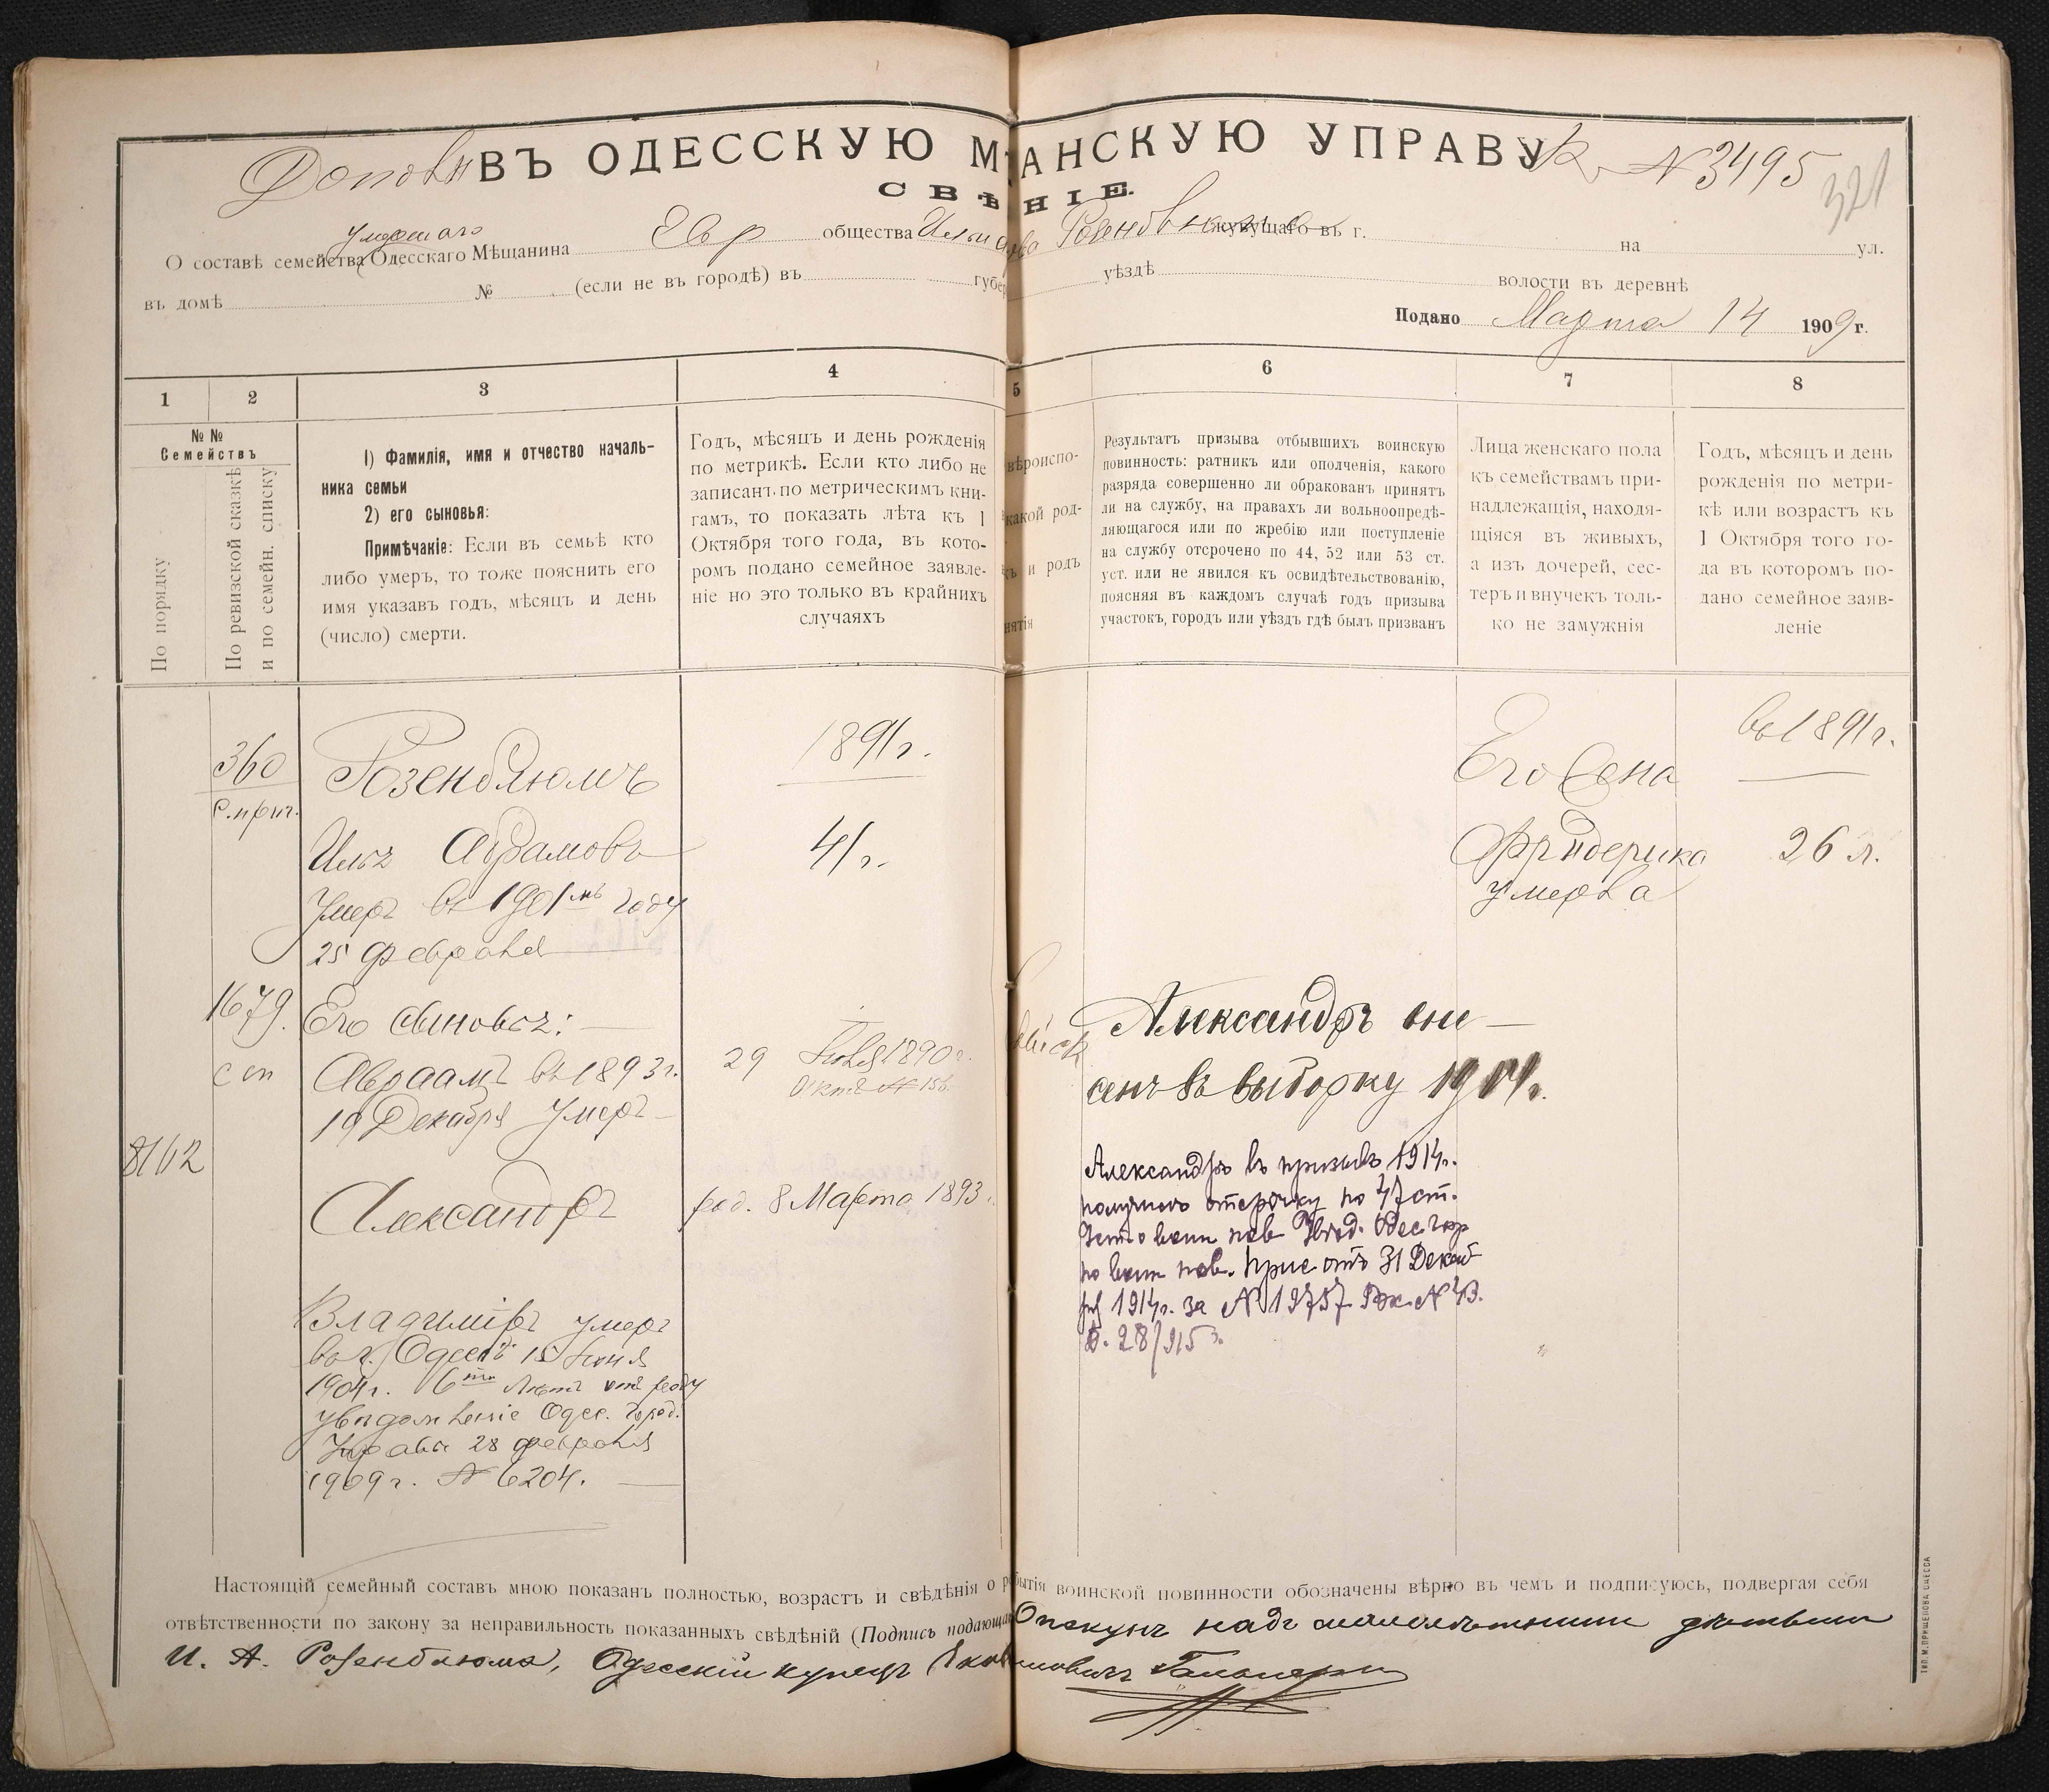 ВЪ ОДЕССКУЮ М АНСКУЮ УПРАВУ № 3495
321
СВѢ НІЕ.
умершаго
О составѣ семейства (Одесскаго Мѣщанина Евр общества жувущаго въ г. на ул.
въ домѣ № (если не въ городѣ) въ губер уѣздѣ волости въ деревнѣ
Подано Марта 14 1909 г.
1 2 3 4 5 6 7 8
№ №
Семействъ
По порядку
По ревизской сказкѣ
и по семейн. списку
1) Фамилія, имя и отчество началь-
ника семьи
2) его сыновья:
Примѣчаніе: Если въ семьѣ кто
либо умеръ, то тоже пояснить его
имя указавъ годъ, мѣсяцъ и день
(число) смерти.
Годъ, мѣсяцъ и день рожденія
по метрикѣ. Если кто либо не
записанъ по метрическимъ кни-
гамъ, то показать лѣта къ 1
Октября того года, въ кото-
ромъ подано семейное заявле-
ніе но это только въ крайнихъ
случаяхъ
вѣроиспо-
какой род-
и родъ
нятія
Результатъ призыва отбывшихъ воинскую
повинность: ратникъ или ополченія, какого
разряда совершенно ли обракованъ принятъ
ли на службу, на правахъ ли вольноопредѣ-
ляющагося или по жребію или поступленіе
на службу отсрочено по 44, 52 или 53 ст.
уст. или не явился къ освидѣтельствованію,
поясняя въ каждомъ случаѣ годъ призыва
участокъ, городъ или уѣздъ гдѣ былъ призванъ
Лица женскаго пола
къ семействамъ при-
надлежащія, находя-
щіяся въ живыхъ,
а изъ дочерей, сес-
теръ и внучекъ толь-
ко не замужнія
Годъ, мѣсяцъ и день
рожденія по метри-
кѣ или возрастъ къ
1 Октября того го-
да въ которомъ по-
дано семейное заяв-
леніе
360
Розенблюмъ
1891 г.
Его жена
въ 1891 г.
Илья Абрамовъ
41 г.
Фридерика
26 л.
Умеръ въ 1901мъ году
умерла
25 февраля
1679.
сп
Его сыновья:
Авраамъ въ 1893 г.
29 Іюля 1890 г.
19 Декабря умеръ
8162
Александръ
род. 8 Марта 1893
Александръ вне-
сенъ въ выборку 1914 г.
Александръ въ призывъ 1914 г.
получилъ отсрочку по 47 ст.
Уст о воин пов Город. Одес. гор
по воин пов. Прис отъ 31 Декаб
ря 1914 г. за № 19757 Вх. № 43.
28/915 г.
Владиміръ умеръ
въ г. Одессѣ 15 Іюня
1904 г. 6ти лѣтъ отъ роду
увѣдомленіе Одес. Город.
Управы 28 февраля
1909 г. № 6204.
Настоящій семейный составъ мною показанъ полностью, возрастъ и свѣдѣнія о бытія воинской повинности обозначены вѣрно въ чемъ и подписуюсь, подвергая себя
отвѣтственности по закону за неправильность показанныхъ свѣдѣній (Подпись подающа Опекунъ надъ малолѣтними дѣтьми
И. А. Розенблюма, Одесскій купецъ
ТИП. М. ПРИЩЕПОВА ОДЕССА